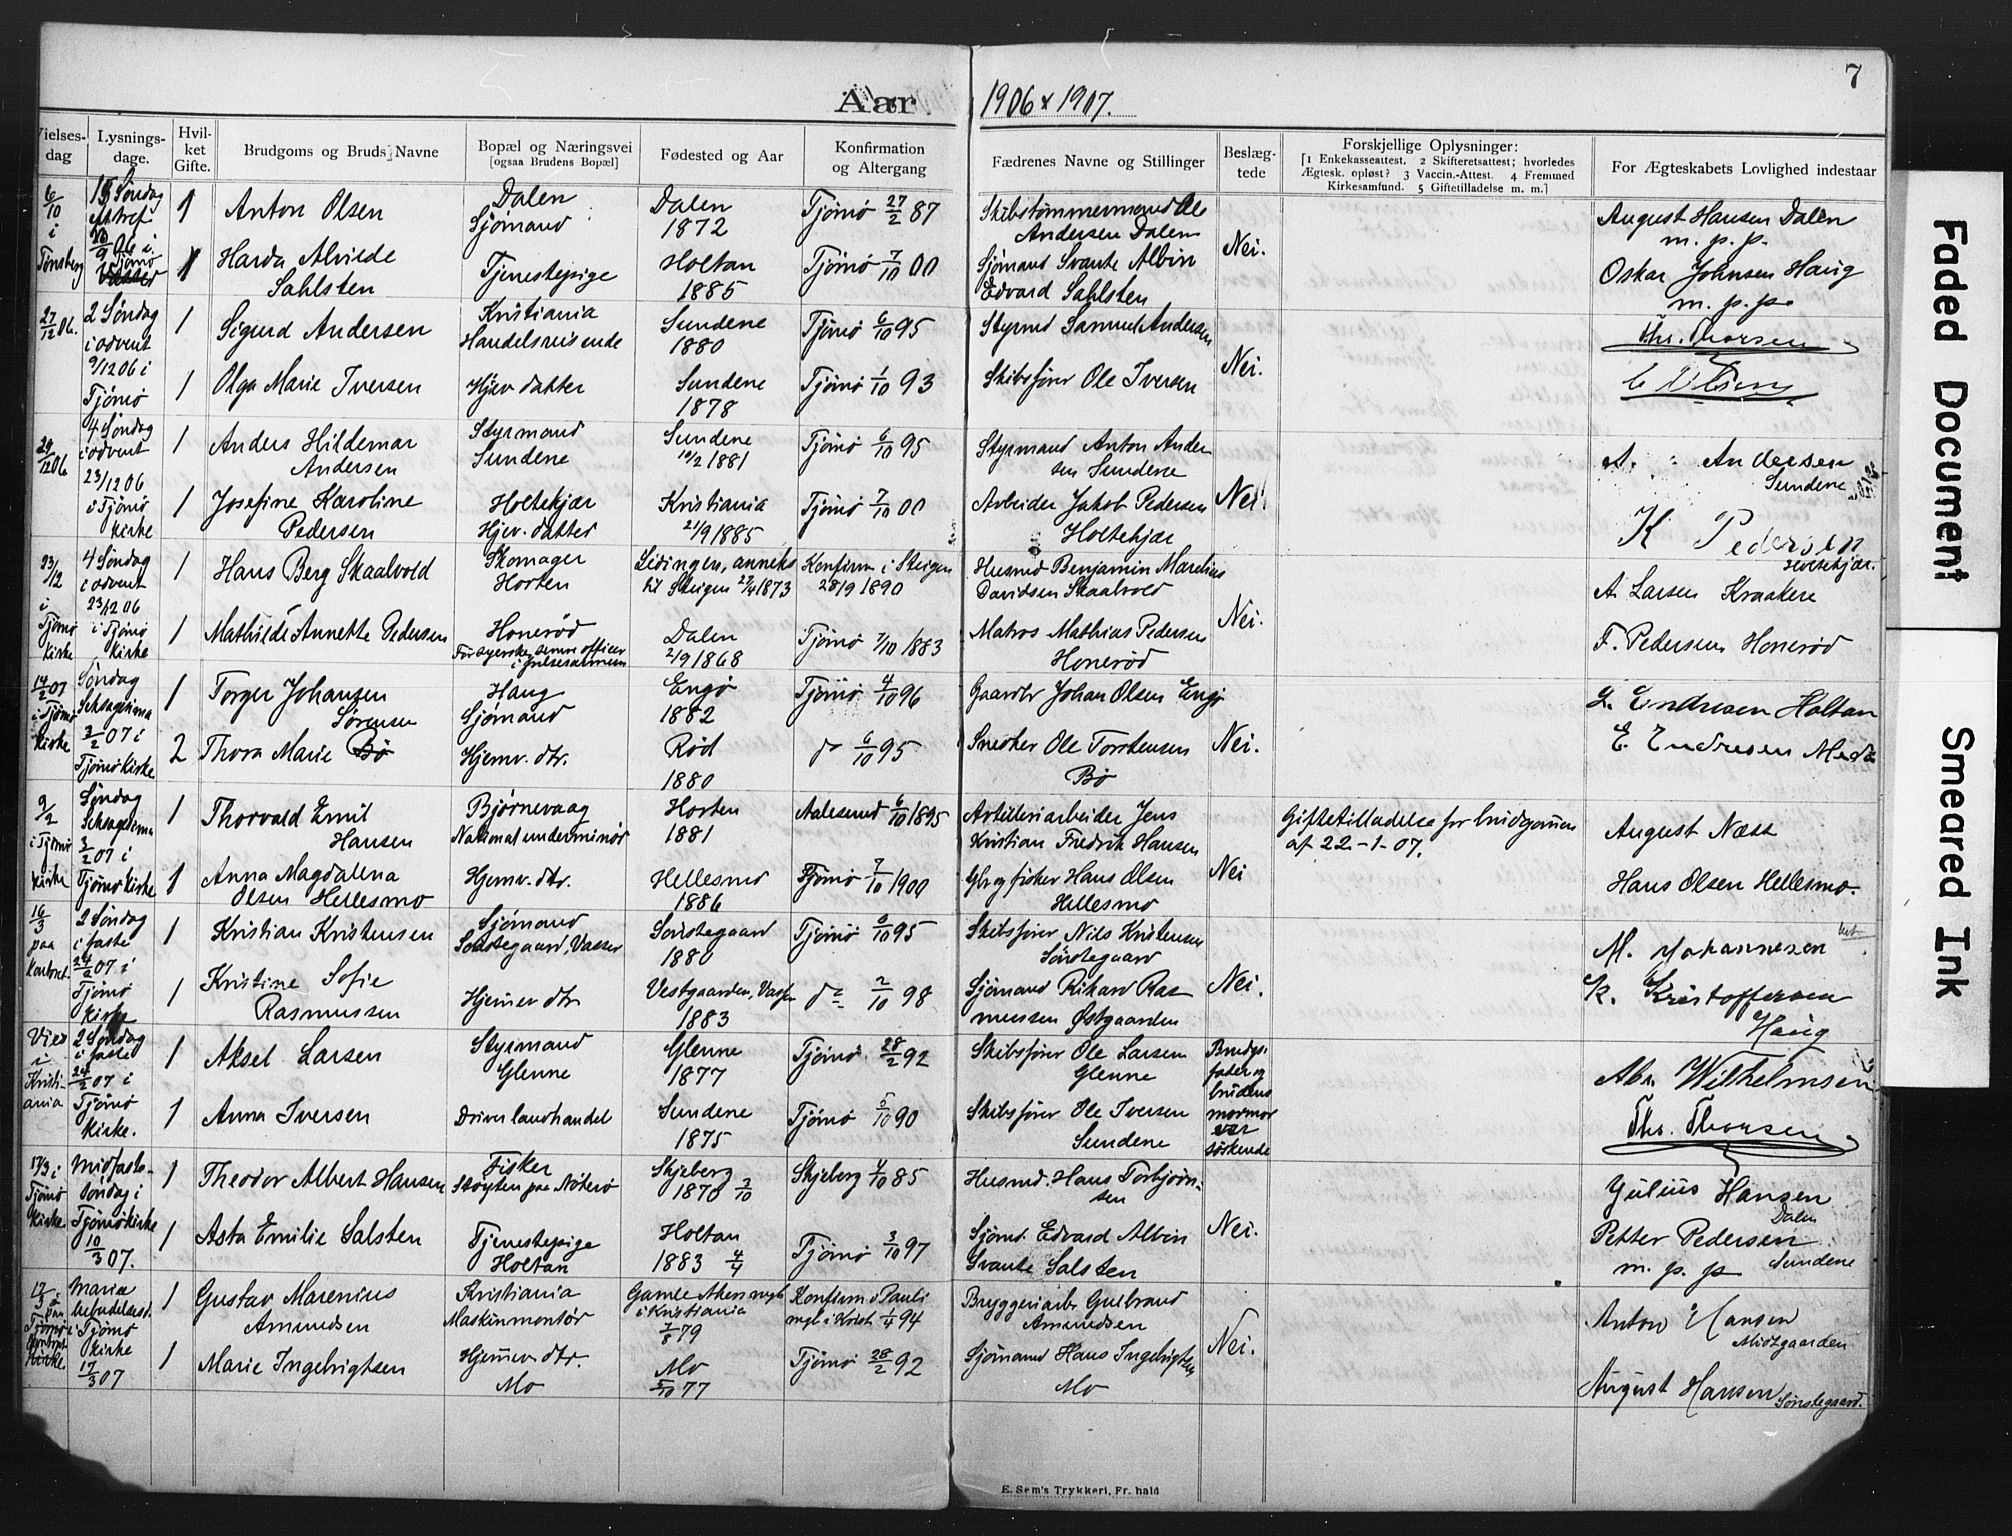 7
Aar 1906 & 1907.
Vielses-dag
Lysnings-dage.
Hvil-ket Gifte.
Brudgoms og Bruds Navne
Bopæl og Næringsvei [ogsaa Brudens Bopæl]
Fødested og Aar
Konfirmation og Altergang
Fædrenes Navne og Stillinger
Beslæg-tede
Forskjellige Oplysninger:
[1 Enkekasseattest. 2 Skifteretsattest; hvorledes
Ægtesk. opløst? 3 Vaccin.-Attest. 4 Fremmed
Kirkesamfund. 5 Giftetilladelse m. m.]
For Ægteskabets Lovlighed indestaar
6/10 i Tønsberg
Søndag
1 Anton Olsen
Dalen Sjømand
Dalen 1872
Tjømø 27/2 87
Skibstømmermand Ole Andersen Dalen
Nei.
August Hansen Dalen
m. p. p.
1 Harda Alvilde Sahlsten
Tjenestepige
Holtan 1885
Tjømø 7/10 00
Sjømand Svante Albin Edvard Sahlsten
Oskar Johnsen Haug
m. p. p.
27/12 06.
2 Søndag i advent 9/12 06 i Tjømø
1 Sigurd Andersen
Kristiania Handelsreisende
Sundene 1880
Tjømø 6/10 95
Styrmd Samuel Andersen
Nei.
Thr. Thorsen
1 Olga Marie Iversen
Hjev. datter
Sundene 1878
Tjømø 1/10 93
Skibsfører Ole Iversen
29/12 06
4 Søndag i advent 23/12 06 i Tjømø kirke
1 Anders Hildemar Andersen
Styrmand Sundene
Sundene 10/2 1881
Tjømø 6/10 95
Styrmand Anton Andersen Sundene
Nei.
A. Andersen
Sundene
1 Josefine Karoline Pedersen
Holtekjær Hjev. datter
Kristiania 21/9 1885
Tjømø 7/10 00
Arbeider Jakob Pedersen Holtekjær
K Pedersen
Holtekjær.
23/12 i Tjømø kirke
4 Søndag i advent 23/12 06 i Tjømø kirke
1 Hans Berg Skaalvold
Skomager Horten
Lødingen, anneks til Steigen 1873
Konfirm i Steigen 28/9 1890
Husmd Benjamin Marelius Davidsen Skaalvold
Nei.
A. Larsen Kraakere
1 Mathilde Annette Pedersen
Honerød
Dalen 2/9 1868
Tjømø 7/10 1883
Matros Mathias Pedersen Honerød
F. Pedersen Honerød
14/2 07 i Tjømø kirke
Søndag Seksagesima 3/2 07 i Tjømø kirke
1 Torger Johansen Sørensen
Haug Sjømand
Engø 1882
Tjømø 4/10 96
Gaardbr Johan Olsen Engø
Nei.
L. Endresen Holtan
2 Thora Marie Bø
Hjemv. dtr.
Rød 1880
do 6/10 95
Snedker Ole Torstensen Bø
E. Endresen
9/2 i Tjømø kirke
Søndag Seksagesima 3/2 07 i Tjømø kirke
1 Thorvald Emil Hansen
Bjørnevaag
Horten 1881
Aalesund 6/10 1895
Artilleriarbeider Jens Kristian Fredrik Hansen
Nei
Giftetilladelse for brudgommen af 22-1-07.
August Næss
1 Anna Magdalena Olsen Hellesmo
Hjemv. dtr.
Hellesmo 1886
Tjømø 7/10 1900
Gbr og fisker Hans Olsen Hellesmo
Hans Olsen Hellesmo.
16/3 paa kontoret
2 Søndag i faste 24/2 07 i Tjømø kirke
1 Kristian Kristensen
Sjømand Sønstegaard, Vasser
Sønstegaard 1880
Tjømø 6/10 95
Skibsfører Nils Kristensen Sønstegaard
Nei.
M. Johannesen
1 Kristine Sofie Rasmussen
Hjemv dtr
Vestgaarden, Vasser 1883
do 2/10 98
Sjømand Rikard Rasmussen Østgaarden
K. Kristoffersen
Haug
Viet i Kristiania
2 Søndag i faste 24/2 07 i Tjømø kirke.
1 Aksel Larsen
Styrmand Glenne
Glenne 1877
Tjømø 28/2 92
Skibsfører Ole Larsen Glenne
Brudgs. fader og brudens mormor var søskende
Abr. Wilhelmsen
1 Anna Iversen
Driver landhandel
Sundene 1875
Tjømø 5/10 90
Skibsfører Ole Iversen Sundene
Thr. Thorsen
17/3 i Tjømø kirke.
Midfaste-søndag i Tjømø kirke 10/3 07.
1 Theodor Albert Hansen
Fisker Støyten paa Nøterø
Skjeberg 1870 3/10
Skjeberg 4/10 85
Husmd. Hans Torbjørnsen
Nei.
Julius Hansen
Dalen
1 Asta Emilie Salsten
Tjenestepige Holtan
Holtan 1883 4/4
Tjømø 3/10 97
Sjømd. Edvard Albin Svante Salsten
Petter Pedersen
m. p. p Sundene
Mariæ bebudelsesd. i Tjømø kirke 17/3 07
1 Gustav Marenius Amundsen
Kristiania Maskinmontør
Gamle Akers mgh i Kristiania 7/8 79
Konfirm i Pauli mgh i Krist. 1/4 94
Bryggeriarb Gulbrand Amundsen
Nei.
Anton Hansen
Midtgaarden
1 Marie Ingebrigtsen
Hjemv dtr. Mo
Mo 5/10 77
Tjømø 28/2 92
Sjømand Hans Ingebrigtsen Mo
August Hansen Sønstegaard.
E. Sem's Trykkeri, Fr. hald
Faded Document
Smeared Ink